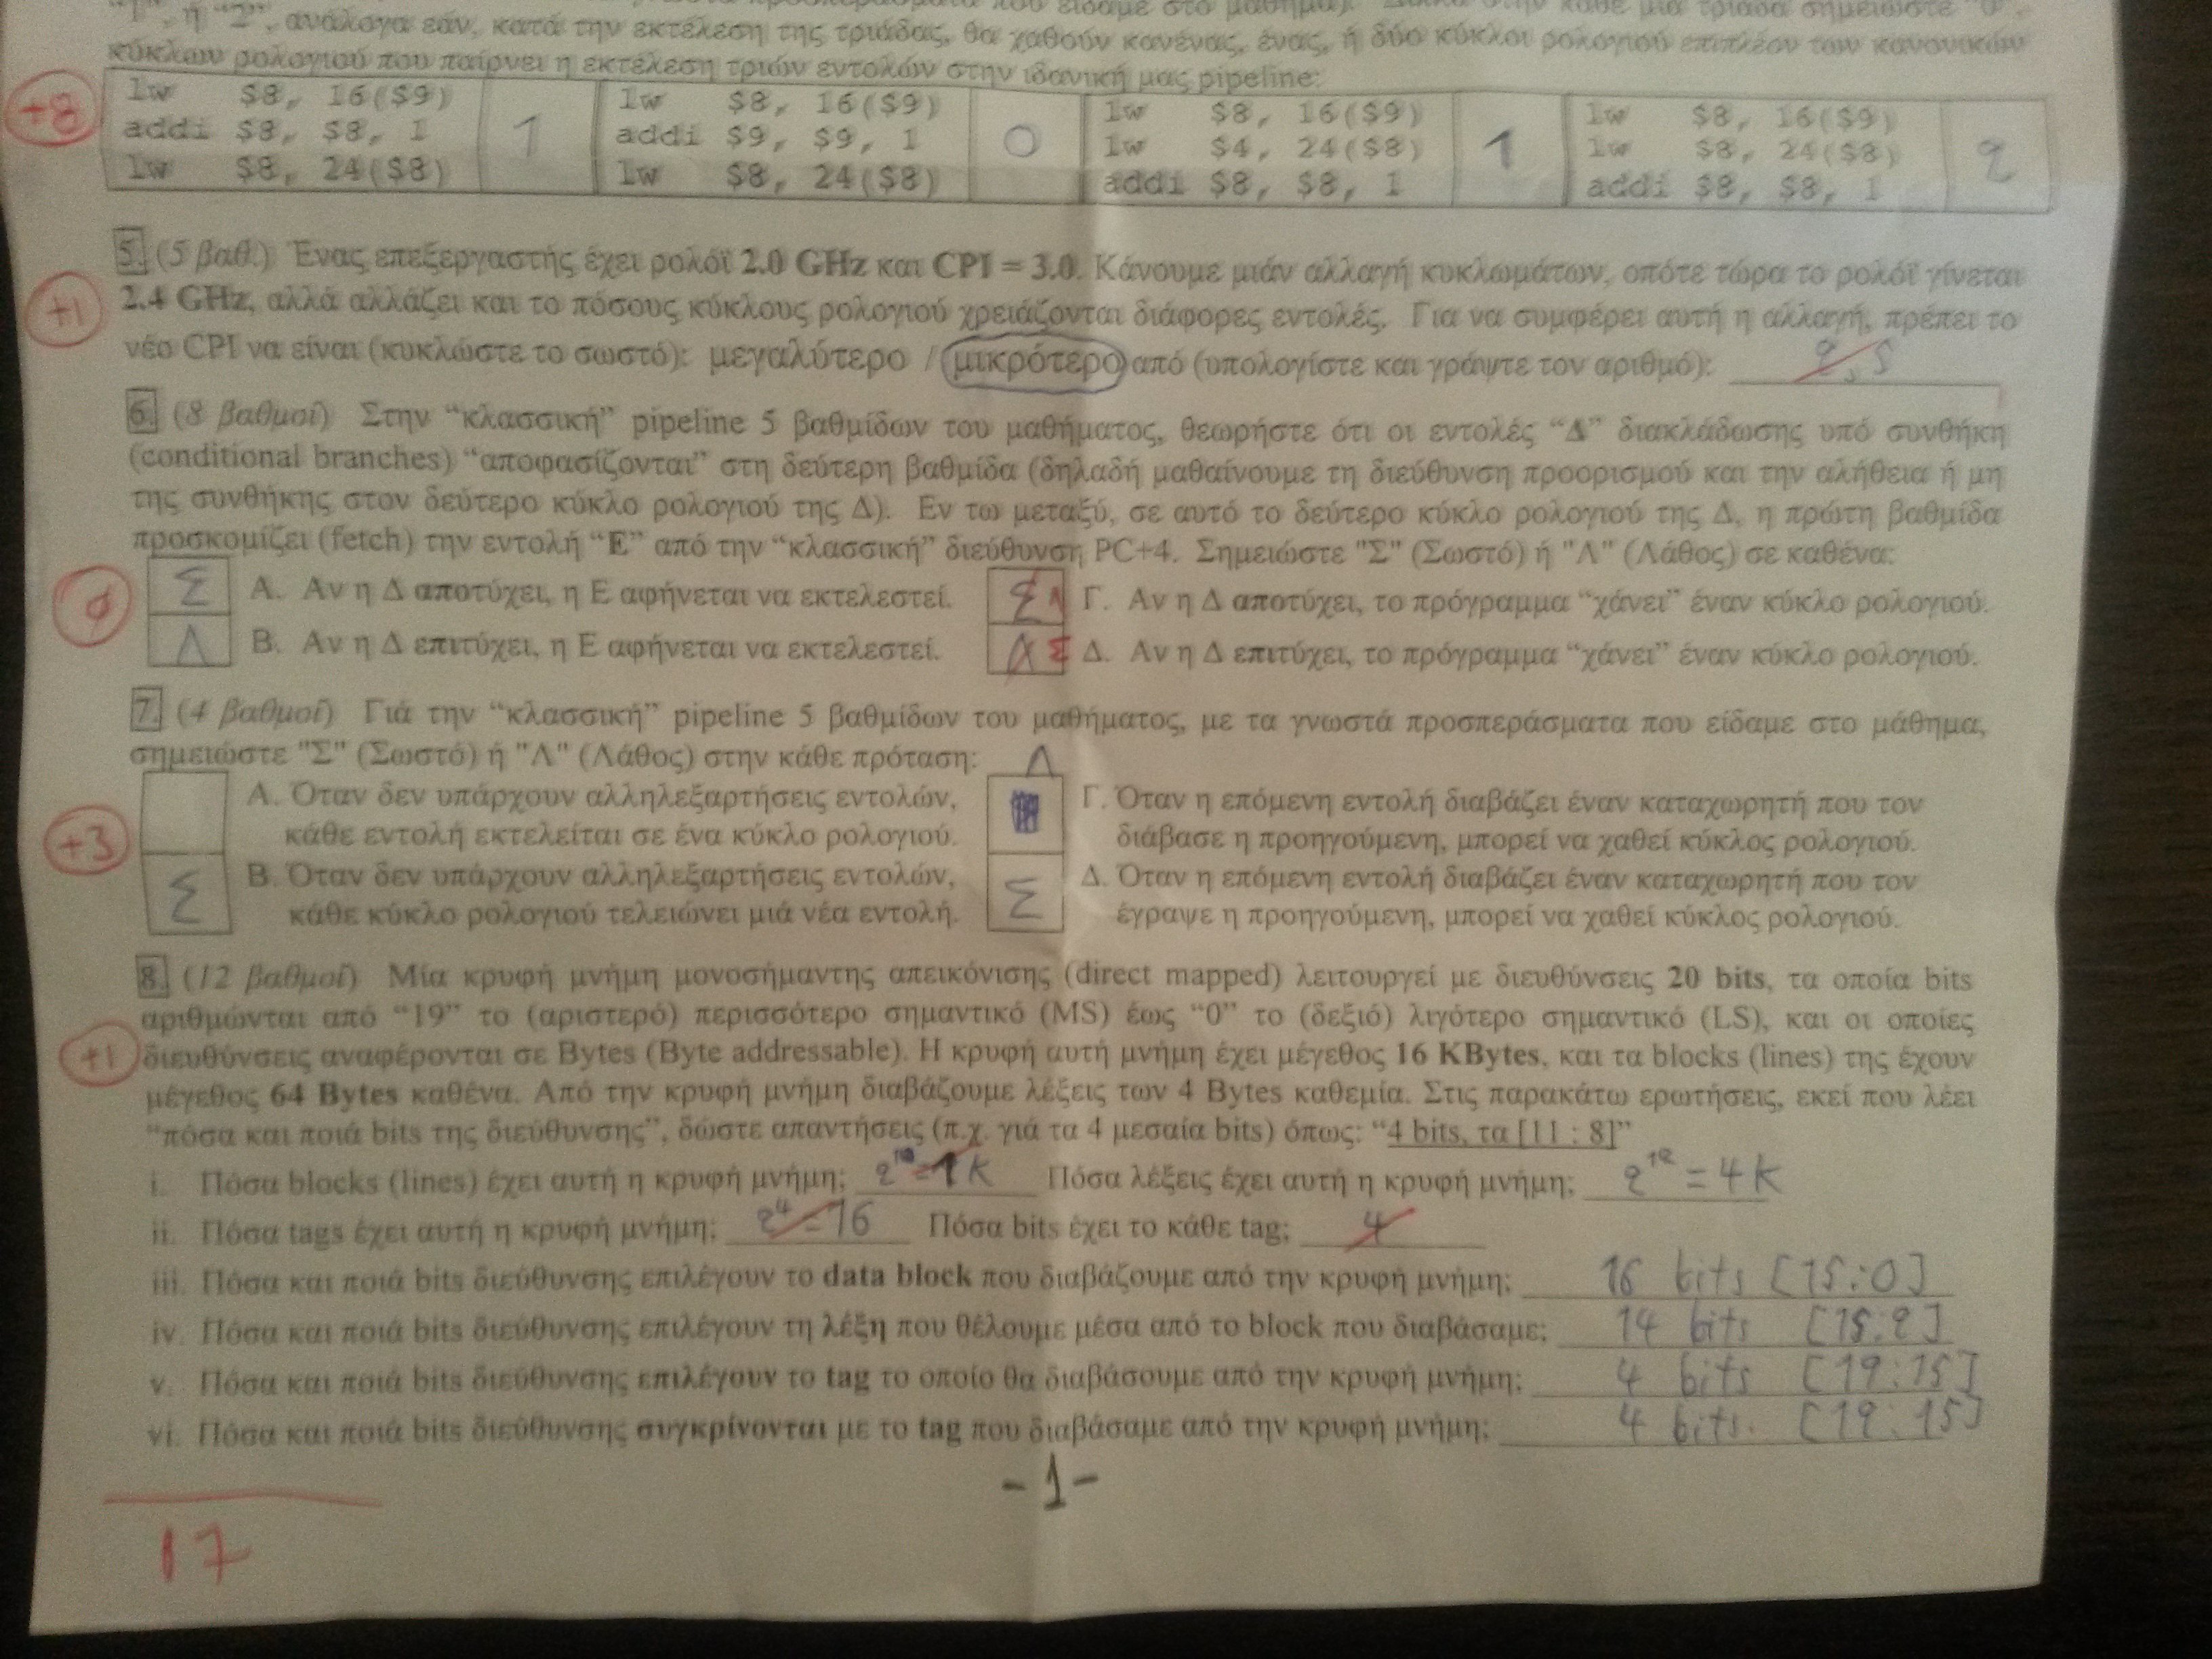 "1", ή "2", ανάλογα εάν, κατά την εκτέλεση της τριάδας, θα χαθούν κανένας, ένας, ή δύο κύκλοι ρολογιού επιπλέον των κανονικών
κύκλων ρολογιού που παίρνει η εκτέλεση τριών εντολών στην ιδανική μας pipeline:
+8
lw $8, 16($9)
addi $8, $8, 1
lw $8, 24($8)
1
lw $8, 16($9)
addi $9, $9, 1
lw $8, 24($8)
0
lw $8, 16($9)
lw $4, 24($8)
addi $8, $8, 1
1
lw $8, 16($9)
lw $8, 24($8)
addi $8, $8, 1
2
5. (5 βαθ.) Ένας επεξεργαστής έχει ρολόϊ 2.0 GHz και CPI = 3.0. Κάνουμε μιάν αλλαγή κυκλωμάτων, οπότε τώρα το ρολόϊ γίνεται
+1 2.4 GHz, αλλά αλλάζει και το πόσους κύκλους ρολογιού χρειάζονται διάφορες εντολές. Για να συμφέρει αυτή η αλλαγή, πρέπει το
νέο CPI να είναι (κυκλώστε το σωστό): μεγαλύτερο / μικρότερο από (υπολογίστε και γράψτε τον αριθμό): 2,5
6. (8 βαθμοί) Στην "κλασσική" pipeline 5 βαθμίδων του μαθήματος, θεωρήστε ότι οι εντολές "Δ" διακλάδωσης υπό συνθήκη
(conditional branches) "αποφασίζονται" στη δεύτερη βαθμίδα (δηλαδή μαθαίνουμε τη διεύθυνση προορισμού και την αλήθεια ή μη
της συνθήκης στον δεύτερο κύκλο ρολογιού της Δ). Εν τω μεταξύ, σε αυτό το δεύτερο κύκλο ρολογιού της Δ, η πρώτη βαθμίδα
προσκομίζει (fetch) την εντολή "Ε" από την "κλασσική" διεύθυνση PC+4. Σημειώστε "Σ" (Σωστό) ή "Λ" (Λάθος) σε καθένα:
Σ Α. Αν η Δ αποτύχει, η Ε αφήνεται να εκτελεστεί.
Σ Λ Γ. Αν η Δ αποτύχει, το πρόγραμμα "χάνει" έναν κύκλο ρολογιού.
Λ Β. Αν η Δ επιτύχει, η Ε αφήνεται να εκτελεστεί.
Λ Σ Δ. Αν η Δ επιτύχει, το πρόγραμμα "χάνει" έναν κύκλο ρολογιού.
7. (4 βαθμοί) Γιά την "κλασσική" pipeline 5 βαθμίδων του μαθήματος, με τα γνωστά προσπεράσματα που είδαμε στο μάθημα,
σημειώστε "Σ" (Σωστό) ή "Λ" (Λάθος) στην κάθε πρόταση: Λ
+3
Α. Όταν δεν υπάρχουν αλληλεξαρτήσεις εντολών,
κάθε εντολή εκτελείται σε ένα κύκλο ρολογιού.
Γ. Όταν η επόμενη εντολή διαβάζει έναν καταχωρητή που τον
διάβασε η προηγούμενη, μπορεί να χαθεί κύκλος ρολογιού.
Σ Β. Όταν δεν υπάρχουν αλληλεξαρτήσεις εντολών,
κάθε κύκλο ρολογιού τελειώνει μιά νέα εντολή.
Σ Δ. Όταν η επόμενη εντολή διαβάζει έναν καταχωρητή που τον
έγραψε η προηγούμενη, μπορεί να χαθεί κύκλος ρολογιού.
8. (12 βαθμοί) Μία κρυφή μνήμη μονοσήμαντης απεικόνισης (direct mapped) λειτουργεί με διευθύνσεις 20 bits, τα οποία bits
αριθμώνται από "19" το (αριστερό) περισσότερο σημαντικό (MS) έως "0" το (δεξιό) λιγότερο σημαντικό (LS), και οι οποίες
+1 διευθύνσεις αναφέρονται σε Bytes (Byte addressable). Η κρυφή αυτή μνήμη έχει μέγεθος 16 KBytes, και τα blocks (lines) της έχουν
μέγεθος 64 Bytes καθένα. Από την κρυφή μνήμη διαβάζουμε λέξεις των 4 Bytes καθεμία. Στις παρακάτω ερωτήσεις, εκεί που λέει
"πόσα και ποιά bits της διεύθυνσης", δώστε απαντήσεις (π.χ. γιά τα 4 μεσαία bits) όπως: "4 bits, τα [11 : 8]"
i. Πόσα blocks (lines) έχει αυτή η κρυφή μνήμη; 2^10 = 1K Πόσα λέξεις έχει αυτή η κρυφή μνήμη; 2^12 = 4K
ii. Πόσα tags έχει αυτή η κρυφή μνήμη; 2^4 = 16 Πόσα bits έχει το κάθε tag; 4
iii. Πόσα και ποιά bits διεύθυνσης επιλέγουν το data block που διαβάζουμε από την κρυφή μνήμη; 16 bits [15:0]
iv. Πόσα και ποιά bits διεύθυνσης επιλέγουν τη λέξη που θέλουμε μέσα από το block που διαβάσαμε; 14 bits [15:2]
v. Πόσα και ποιά bits διεύθυνσης επιλέγουν το tag το οποίο θα διαβάσουμε από την κρυφή μνήμη; 4 bits [19:15]
vi. Πόσα και ποιά bits διεύθυνσης συγκρίνονται με το tag που διαβάσαμε από την κρυφή μνήμη; 4 bits. [19:15]
- 1 -
17